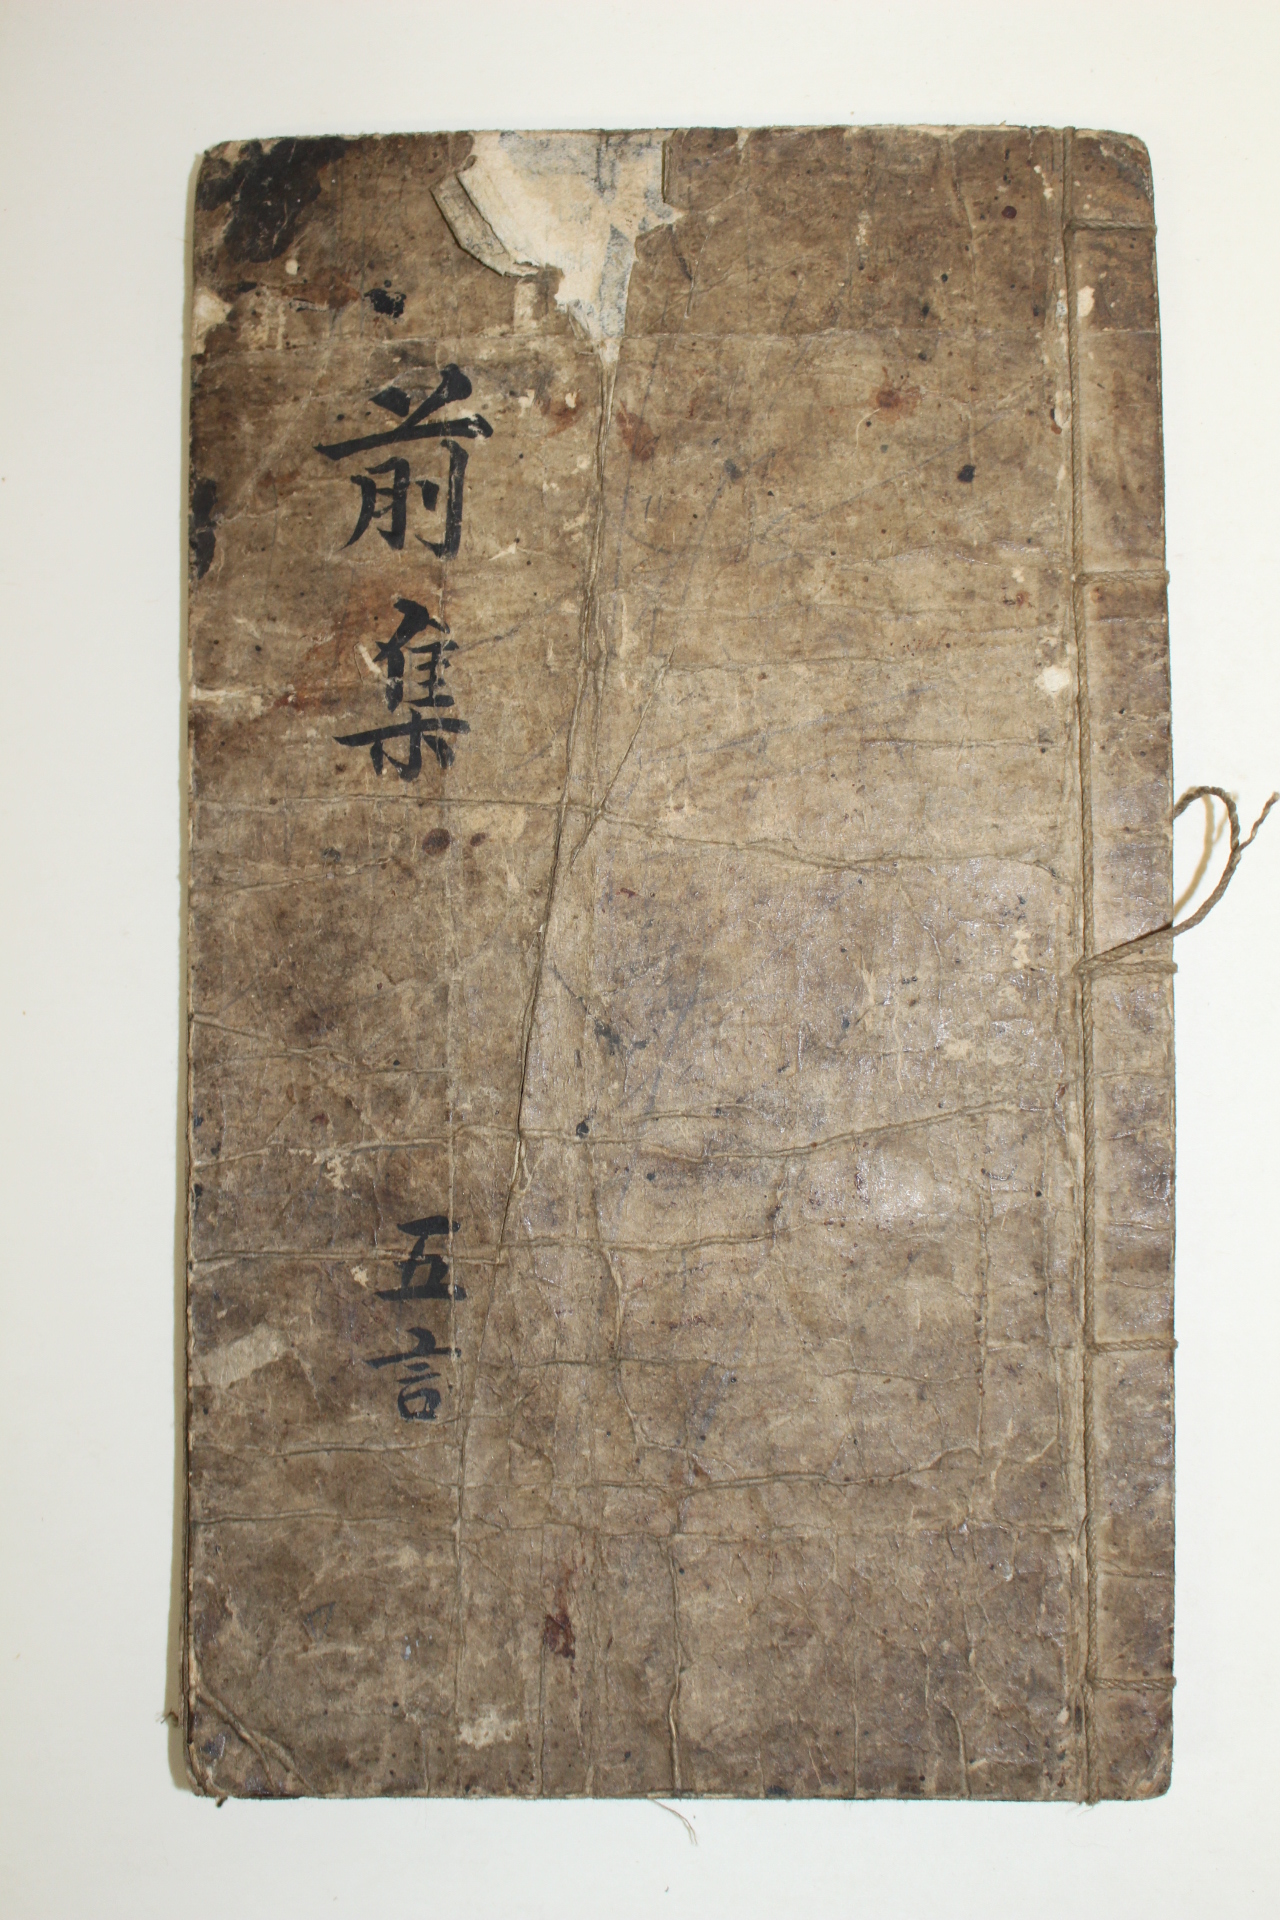 前集 五言